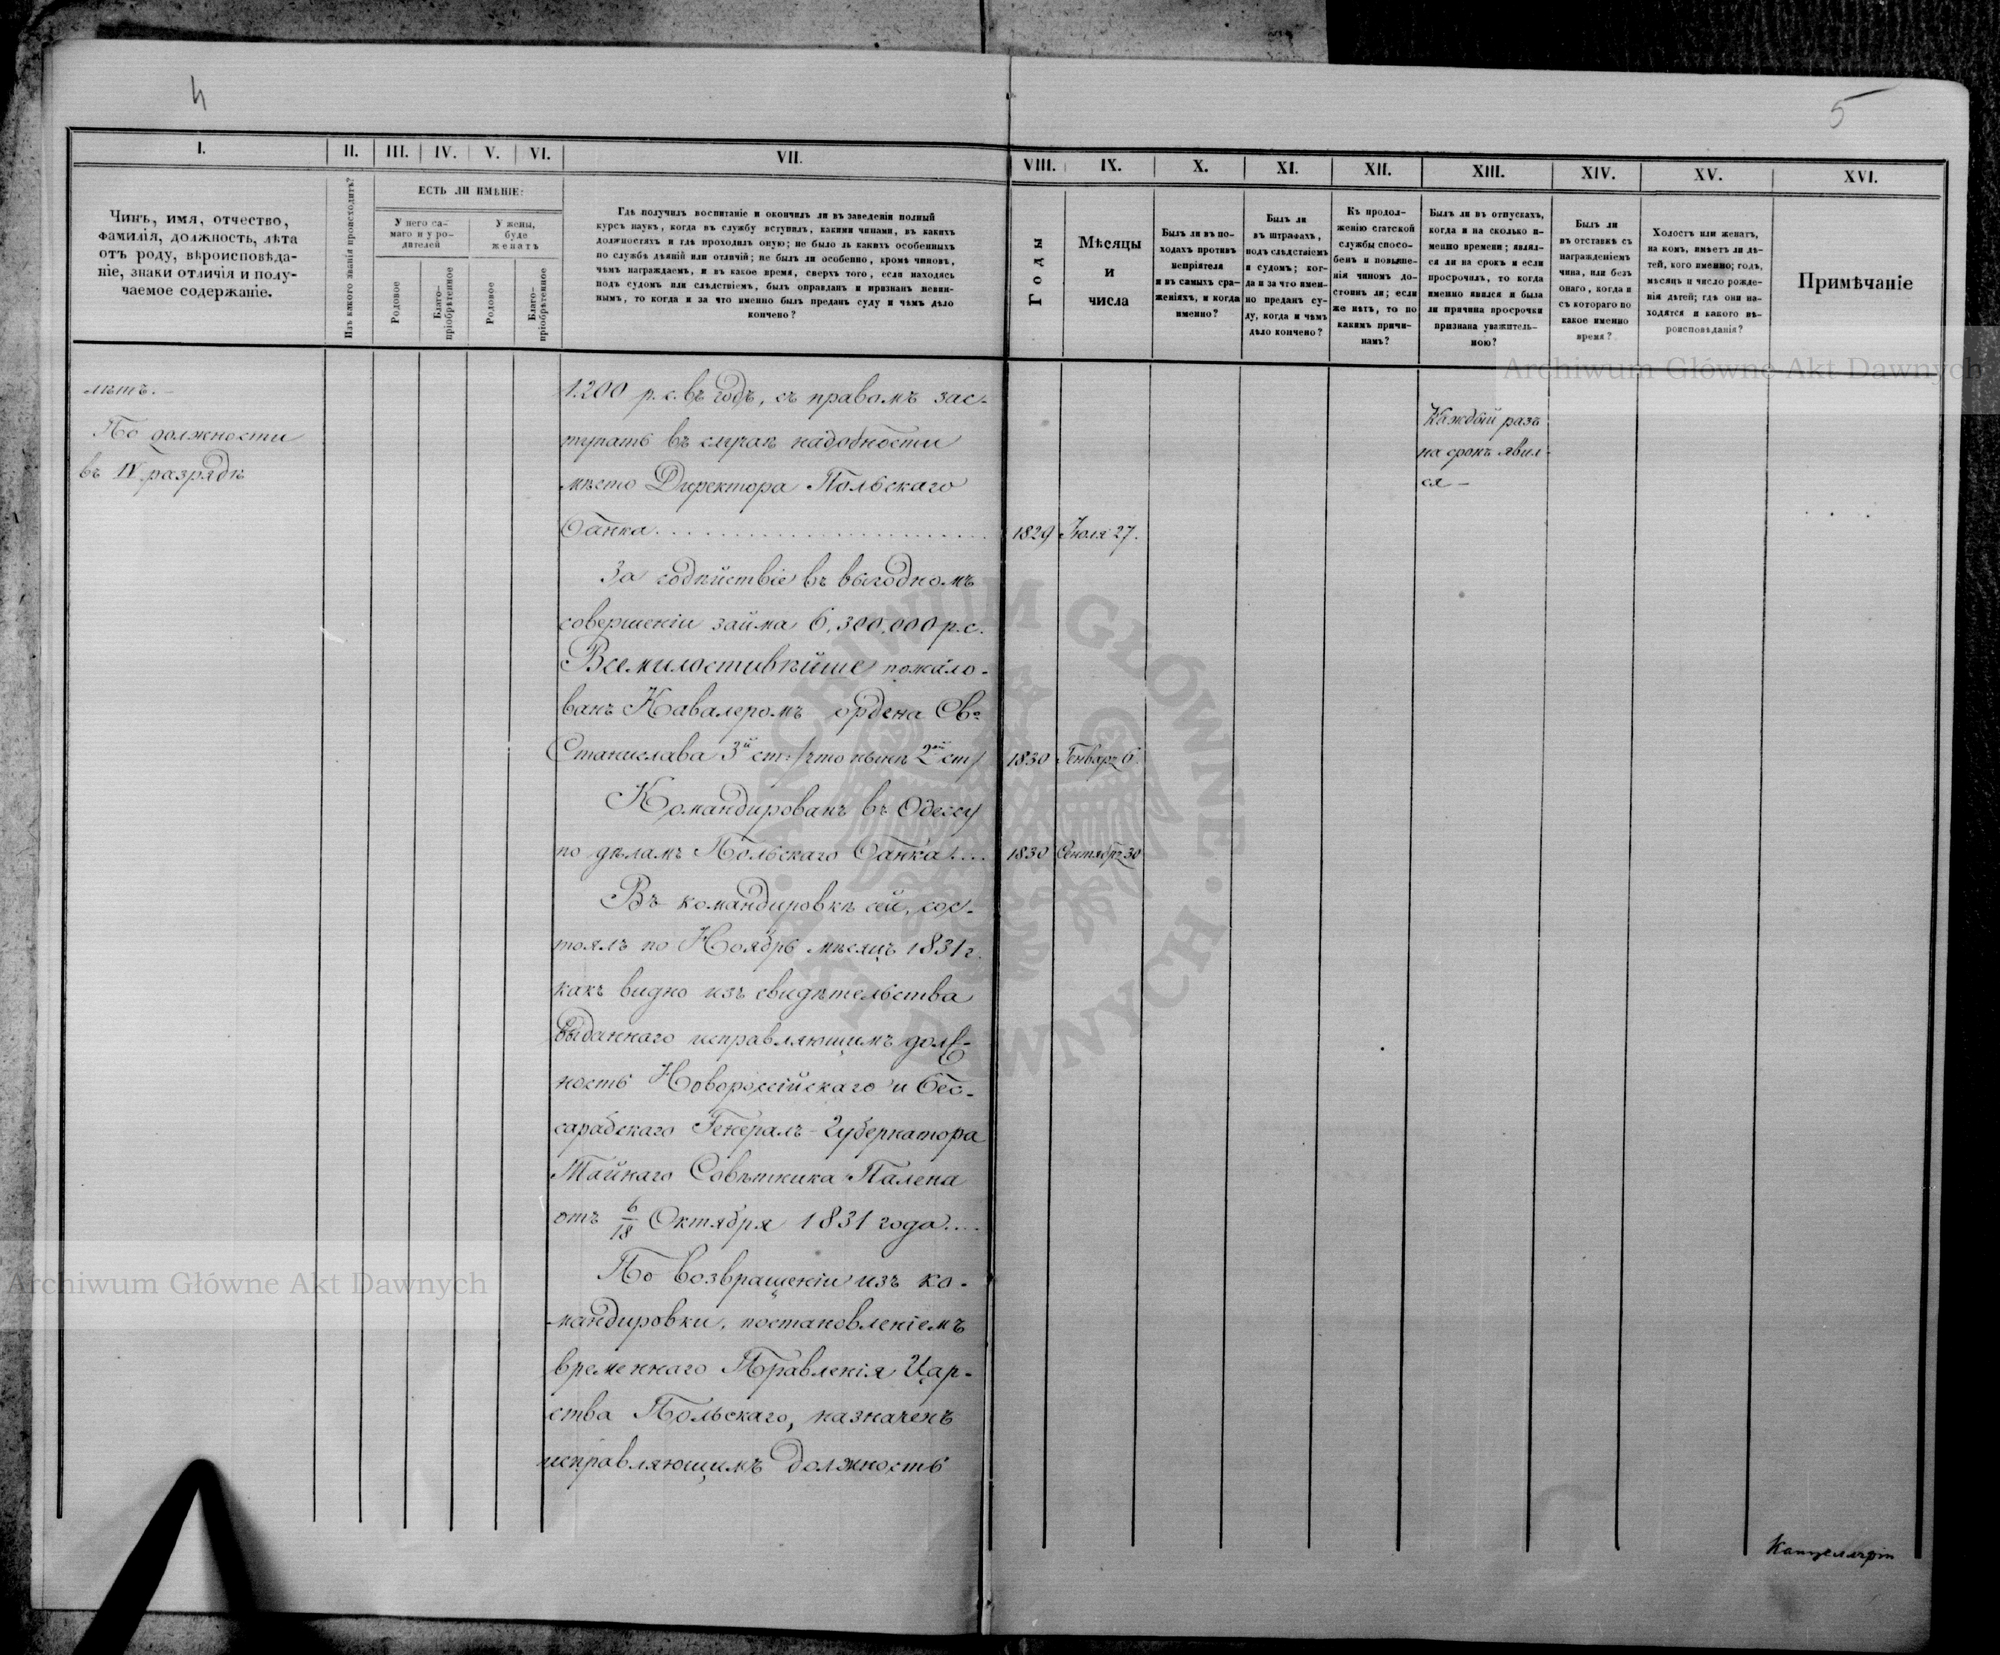 4
5
I.
II.
III.
IV.
V.
VI.
VII.
VIII.
IX.
X.
XI.
XII.
XIII.
XIV.
XV.
XVI.
Чинъ, имя, отчество,
фамилія, должность, лѣта
отъ роду, вѣроисповѣда-
ніе, знаки отличія и полу-
чаемое содержаніе.
Изъ какого званія происходитъ?
ЕСТЬ ЛИ ИМѢНІЕ:
У него са-
маго и у ро-
дителей
У жены,
буде
женатъ
Родовое
Благо-
пріобрѣтенное
Родовое
Благо-
пріобрѣтенное
Гдѣ получилъ воспитаніе и окончилъ ли въ заведеніи полный
курсъ наукъ, когда въ службу вступилъ, какими чинами, въ какихъ
должностяхъ и гдѣ проходилъ оную; не было ль какихъ особенныхъ
по службѣ дѣяній или отличій; не былъ ли особенно, кромѣ чиновъ,
чѣмъ награждаемъ, и въ какое время, сверхъ того, если находясь
подъ судомъ или слѣдствіемъ, былъ оправданъ и признанъ невин-
нымъ, то когда и за что именно былъ преданъ суду и чѣмъ дѣло
кончено?
Годы
Мѣсяцы
и
числа
Былъ ли въ по-
ходахъ противъ
непріятеля
и въ самыхъ сра-
женіяхъ, и когда
именно?
Былъ ли
въ штрафахъ,
подъ слѣдствіемъ
и судомъ; ког-
да и за что имен-
но преданъ су-
ду, когда и чѣмъ
дѣло кончено?
Къ продол-
женію статской
службы спосо-
бенъ и повыше-
нія чиномъ до-
стоинъ ли; если
же нѣтъ, то по
какимъ причи-
намъ?
Былъ ли въ отпускахъ,
когда и на сколько и-
менно времени; являл-
ся ли на срокъ и если
просрочилъ, то когда
именно явился и была
ли причина просрочки
признана уважитель-
ною?
Былъ ли
въ отставкѣ съ
награжденіемъ
чина, или безъ
онаго, когда и
съ котораго по
какое именно
время?
Холостъ или женатъ,
на комъ, имѣетъ ли дѣ-
тей, кого именно; годъ,
мѣсяцъ и число рожде-
нія дѣтей; гдѣ они на-
ходятся и какого вѣ-
роисповѣданія?
Примѣчаніе
лѣтъ.-
По должности
въ IV разрядѣ
1.200 р.с. въ годъ, съ правомъ зас-
тупать въ случаѣ надобности
мѣсто Директора Польскаго
Банка
1829 Іюля 27.
За содѣйствіе въ выгодномъ
совершеніи займа 6,300,000 р.с.
Всемилостивѣйше пожало-
ванъ Кавалеромъ ордена Св.
Станислава 3й ст: /что нынѣ 2ой ст/
1830 Генваря 6.
Командированъ въ Одессу
по дѣламъ Польскаго Банка....
1830 Сентября 30
Въ командировкѣ сей, сос-
тоялъ по Ноябрь мѣсяцъ 1831 г.
какъ видно изъ свидѣтельства
выданнаго исправляющимъ долж-
ность Новороссійскаго и Бес-
сарабскаго Генералъ-Губернатора
Тайнаго Совѣтника Палена
отъ 6/18 Октября 1831 года....
По возвращеніи изъ ко-
мандировки, постановленіемъ
временнаго Правленія Цар-
ства Польскаго, назначенъ
исправляющимъ должность
Каждый разъ
на срокъ явил-
ся -
Archiwum Główne Akt Dawnych
Archiwum Główne Akt Dawnych
ARCHIWUM GŁÓWNE AKT DAWNYCH